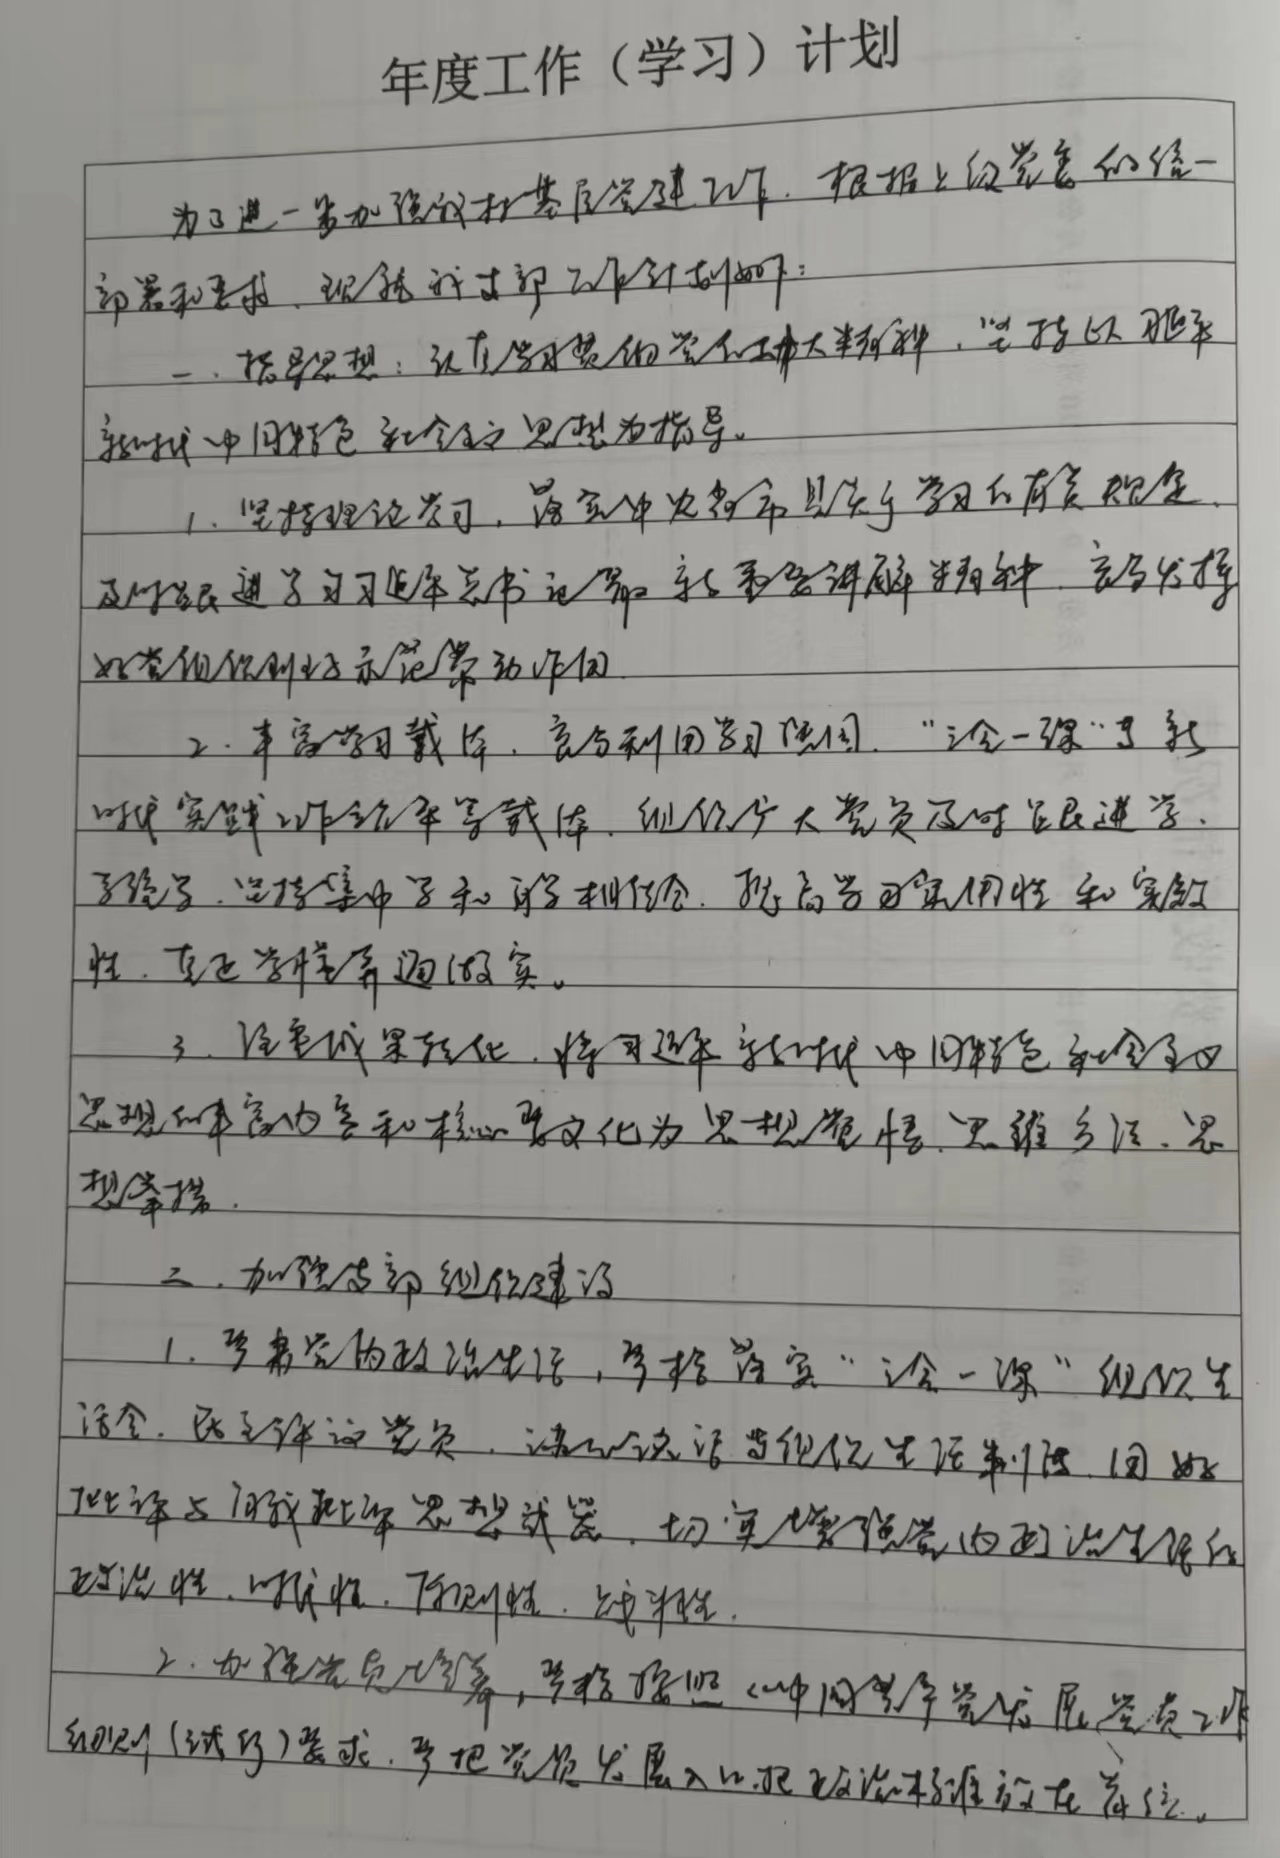 年度工作（学习）计划
为了进一步加强农村基层党建工作，根据上级党委的统一
部署和要求，现就我支部工作计划如下：
一、指导思想：认真学习贯彻党的十九大精神，坚持以习近平
新时代中国特色社会主义思想为指导。
1、坚持理论学习，落实中央省市县关于学习的有关规定，
及时跟进学习习近平总书记最新重要讲解精神，充分发挥
好党组织到示范带动作用
2、丰富学习载体，充分利用学习强国，“三会一课”与新
时代实践工作等载体，组织广大党员及时跟进学、
学，坚持集中学和自学相结合，提高学习实用性和实效
性，真正学懂弄通做实。
3、注重成果转化，将习近平新时代中国特色社会主义
思想的丰富内容和核心要文化为思想觉悟、思维方法、思
想举措。
二、加强支部组织建设
1、严肃党内政治生活，严格落实“三会一课”组织生
活会，民主评议党员，谈心谈话等组织生活制度，用好
批评与自我批评思想武器，切实增强党内政治生活的
政治性、时代性、原则性、战斗性。
2、加强党员培养，严格按照《中国共产党发展党员工作
细则（试行）要求，严把党员发展入口，把政治标准放在首位。